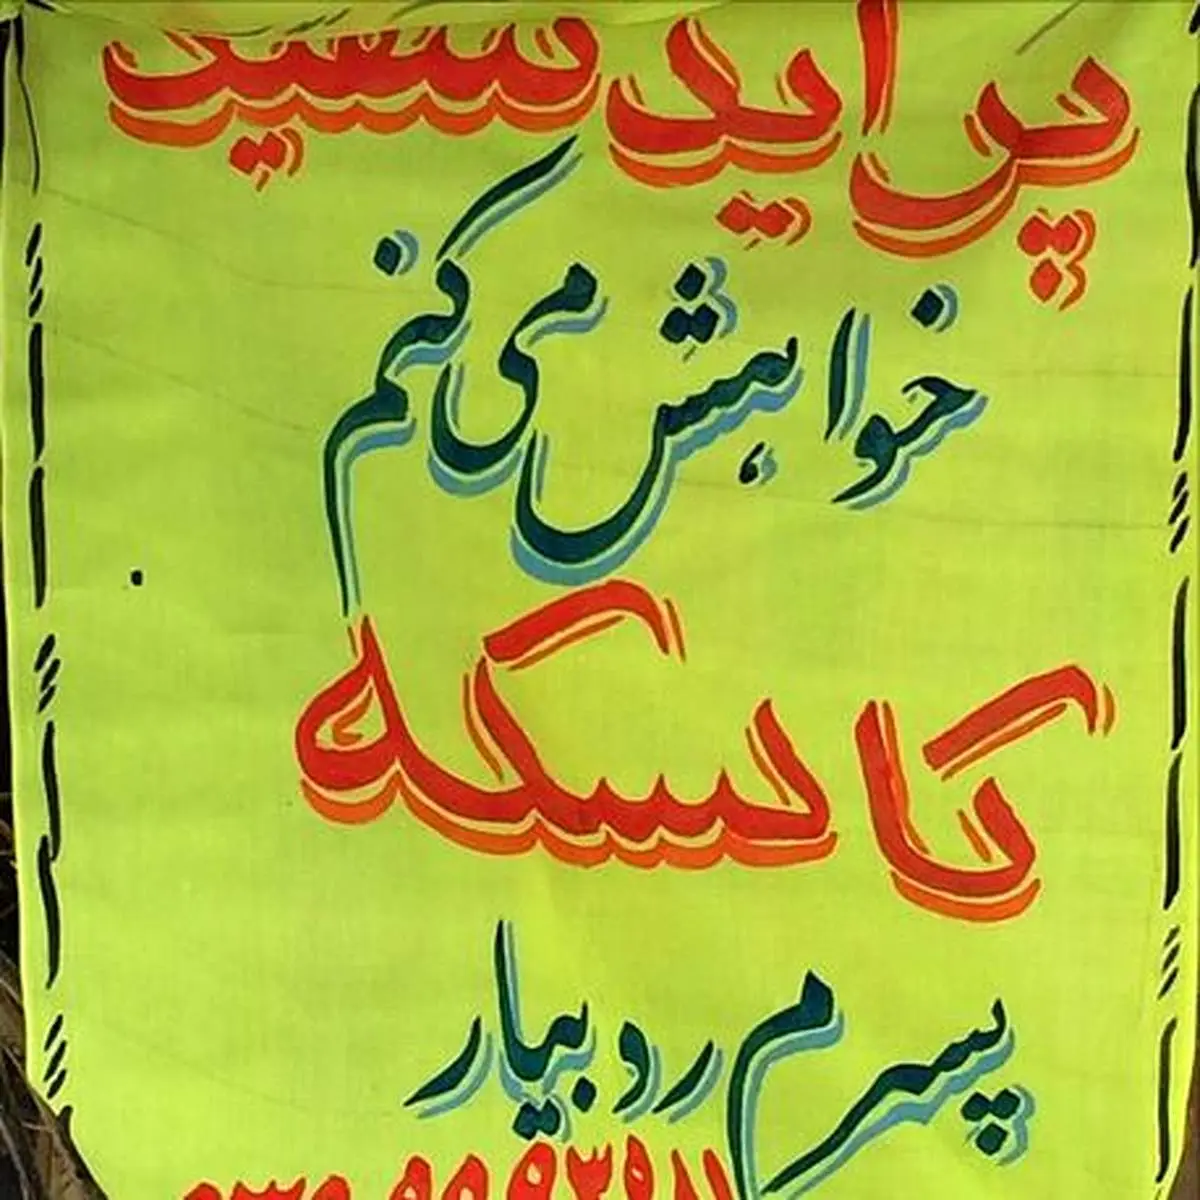 پراید سفید
خواهش می کنم
کاسکه
پسرم رو بیار